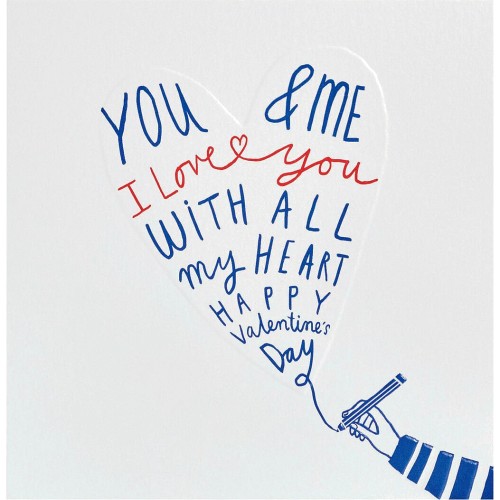 YOU & ME
I Love you
WITH ALL
my HEART
HAPPY
Valentine's
Day